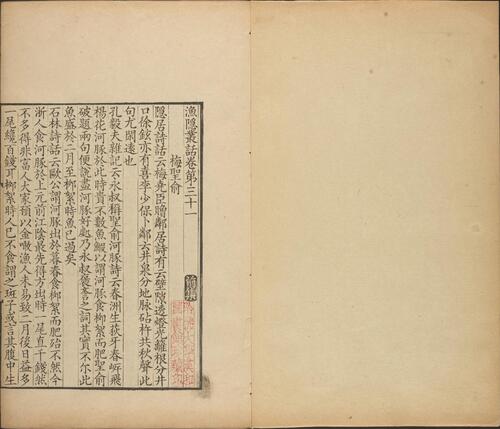 漁隱叢話卷第三十一
梅聖俞
隱居詩話云梅堯臣贈鄰居詩有云壁隙透燈光籬根分井
口徐鉉亦有喜李少保卜鄰云井泉分地脉砧杵共秋聲此
句尤閑遠也
孔毅夫雜記云永叔稱聖俞河豚詩云春洲生荻芽春岸飛
楊花河豚於此時貴不數魚鰕以謂河豚食柳絮而肥聖俞
破題兩句便說盡河豚好處乃永叔褒譽之詞其實不尓此
魚盛於二月至柳絮時魚已過矣
石林詩話云歐公謂河豚出於暮春食柳絮而肥殆不然今
浙人食河豚於上元前江陰最先得方出時一尾直千錢然
不多得非富人大家預以金噉漁人未易致二月後日益多
一尾纔百錢耳柳絮時人已不食謂之班子或言其腹中生